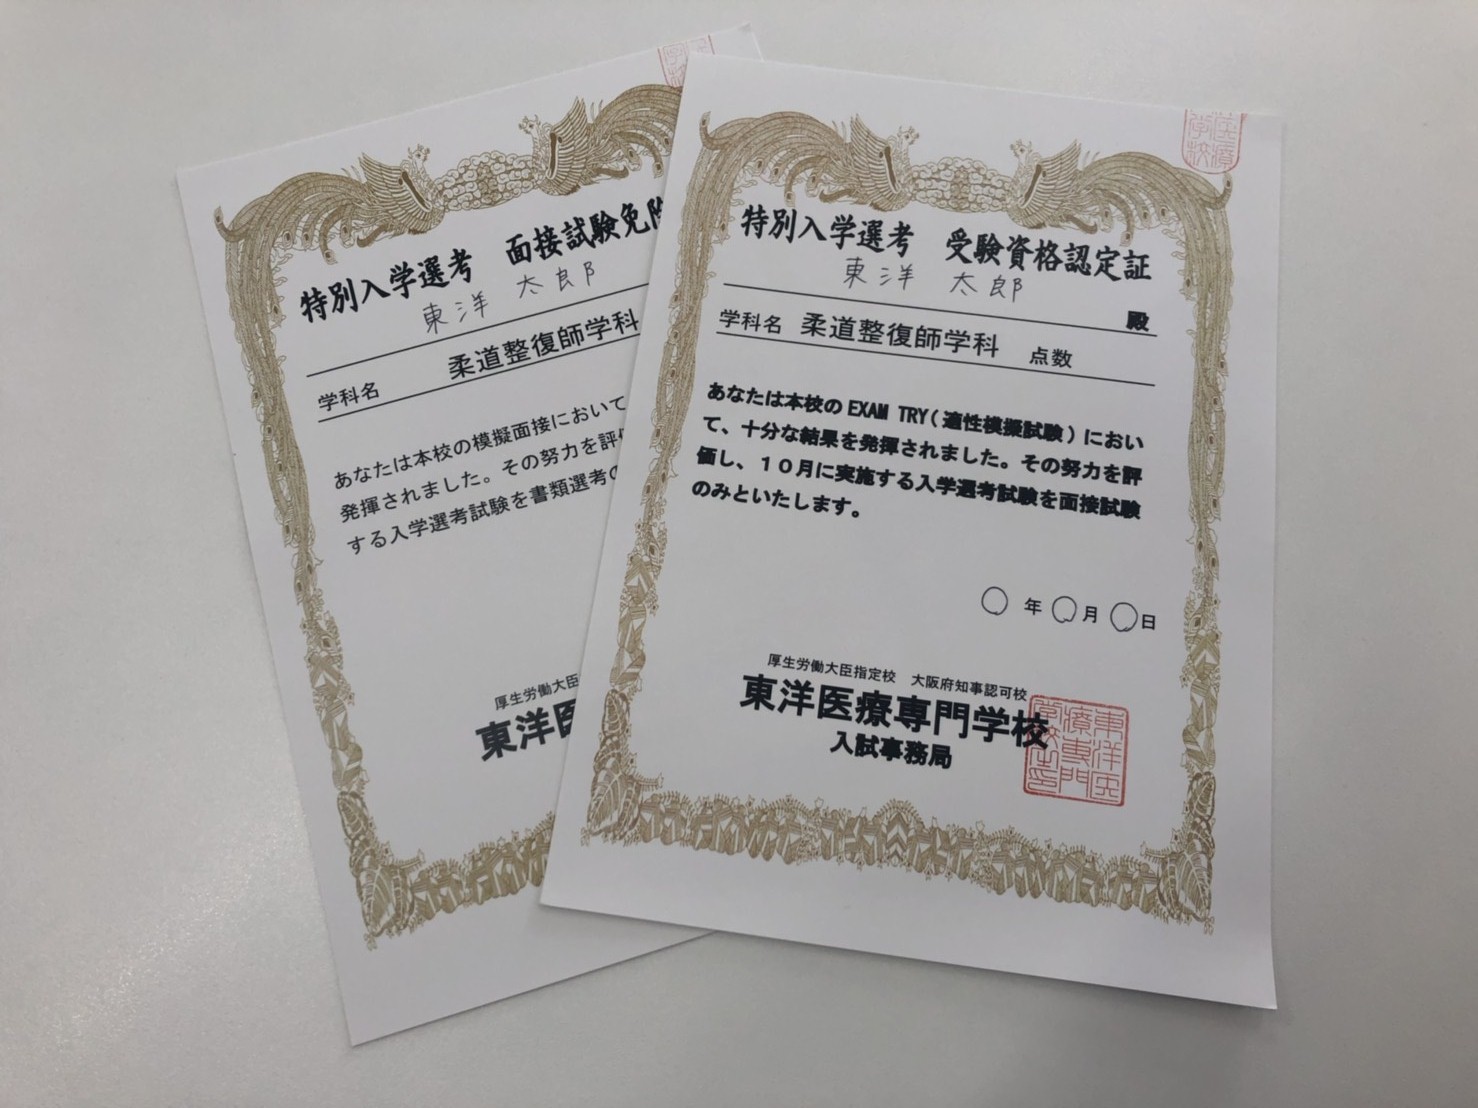 特別入学選考 面接試験免除
東洋 太郎
学科名 柔道整復師学科
あなたは本校の模擬面接において
発揮されました。その努力を評価
する入学選考試験を書類選考の
厚生労働大臣
東洋医
特別入学選考 受験資格認定証
東洋 太郎
殿
学科名 柔道整復師学科 点数
あなたは本校の EXAM TRY(適性模擬試験)におい
て、十分な結果を発揮されました。その努力を評
価し、10月に実施する入学選考試験を面接試験
のみといたします。
〇 年 〇 月 〇 日
厚生労働大臣指定校 大阪府知事認可校
東洋医療専門学校
入試事務局